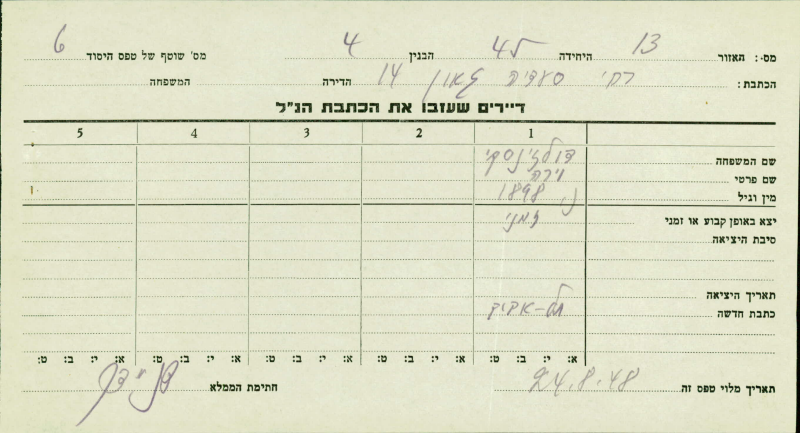 מס׳: האזור 13 היחידה 45 הבנין 4 מס׳ שוטף של טפס היסוד 6
הכתבת: רח׳ סעדיה גאון 14 הדירה המשפחה
דיירים שעזבו את הכתבת הנ״ל
1 2 3 4 5
שם המשפחה
שם פרטי
מין וגיל נ. 1898
יצא באופן קבוע או זמני זמני
סיבת היציאה
תאריך היציאה
כתבת חדשה תל-אביב
א: י: ב: ט: א: י: ב: ט: א: י: ב: ט: א: י: ב: ט: א: י: ב: ט:
תאריך מלוי טפס זה 24.8.48 חתימת הממלא